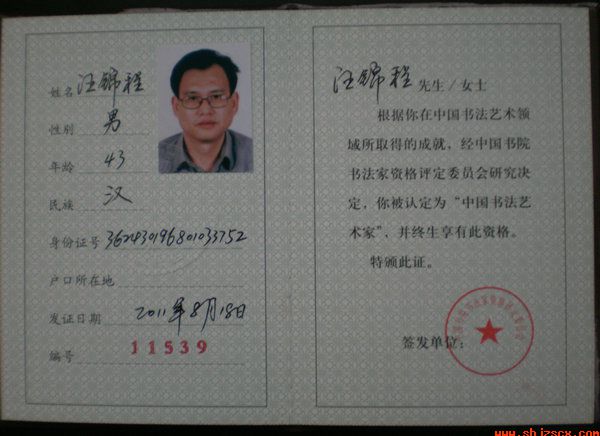 姓名 汪锦程
性别 男
年龄 43
民族 汉
身份证号 362430196801033752
户口所在地
发证日期 2011年8月18日
编号 11539
汪锦程 先生/女士
根据你在中国书法艺术领
域所取得的成就，经中国书院
书法家资格评定委员会研究决
定，你被认定为“中国书法艺
术家”，并终生享有此资格。
特颁此证。
签发单位：
www.shjzscx.com